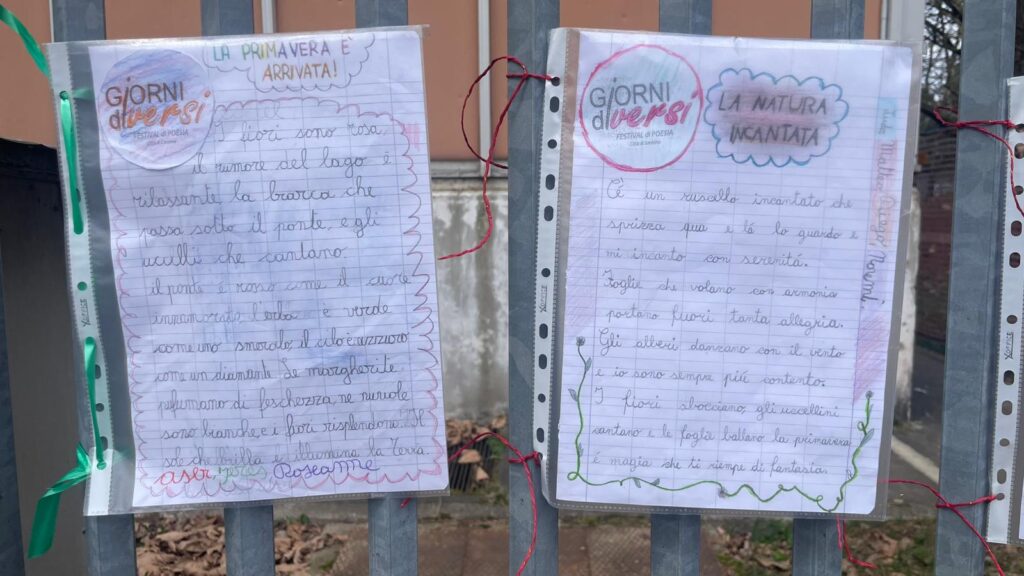 LA PRIMAVERA È
ARRIVATA!
GiORNI
diversi
FESTIVAL di POESIA
Città di Cesena
I fiori sono rosa
il rumore del lago è
rilassante la barca che
passa sotto il ponte, e gli
uccelli che cantano.
il ponte è rosso come il cuore
innamorato l'erba è verde
come uno smeraldo il cielo è azzurro
come un diamante. Le margherite
profumano di freschezza, ne nuvole
sono bianche e i fiori risplendono. Il
sole che brilla e illumina la Terra
aser Roseanne
GiORNI
diversi
FESTIVAL di POESIA
LA NATURA
INCANTATA
C'è un ruscello incantato che
sprizza qua e lá lo guardo e
mi incanto con serenitá.
Foglie che volano con armonia
portano fuori tanta allegria.
Gli alberi danzano con il vento
e io sono sempre piú contento.
I fiori sbocciano, gli uccellini
cantano e le foglie ballano la primavera
é magia che ti riempe di fantasia.
Diego Noemi